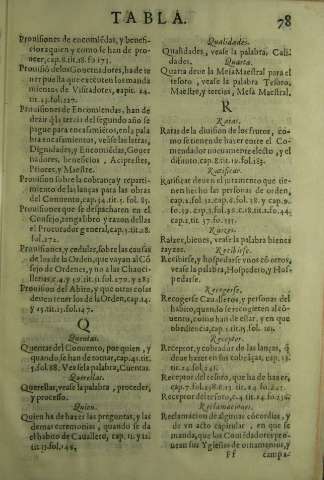 TABLA.
78
Prouisiones de encomiẽdas, y benefi-
cios a quien y como se han de pro-
ueer, cap. 8. tit. 18. fo 171.
Prouisió de los Gouernadores, ha de te
ner puesta que executen los manda
mientos de Visitadores, capit. 14.
tit. 15. fol. 127.
Prouisiones de Encomiendas, han de
dezir q̃ la tercia del segundo año se
pague para encasamiẽtos, en la pala
bra encasamientos, veãse las letras,
Dignidades, y Encomiẽdas, Gouer
nadores, beneficios, Acipreſtes,
Priores, y Maestre.
Prouision sobre la cobrança y reparti-
miento de las lanças para las obras
del Conuento, cap. 54. tit. 5. fol. 85.
Prouisiones que se despacharen en el
Consejo ponga libro y razon dellas
el Procurador general, cap. 5. tit. 28.
fol. 272.
Prouisiones, y cedulas, sobre las causas
de los de la Orden, que vayan al Cõ
sejo de Ordenes, y no a las Chanci-
llerias, c. 4. y
Prouision del Abito, y que otras colas
deuen tener los de la Orden, cap. 14.
y 15. tit. 15. fol. 147.
Q
Quentas.
Quentas del Conuento, por quien, y
quando, se han de tomar, cap. 41. tit.
5. fol. 88. Vease la palabra, Cuentas.
Querellas.
Querellas, vease la palabra, proceder,
y processo.
Quien.
Quien ha de hazer las preguntas, y las
demas ceremonias, quando se da
el habito de Cauallero, cap. 11. y 21.
tit. 13. fol. 148.
Qualidades.
Qualidades, vease la palabra, Cali
dades.
Quarta.
Quarta deue la Mesa Maestral para el
tesoro, vease la palabra Tesoro,
Maestre, y tercias, Mesa Maestral.
R
Ratas.
Ratas de la diuision de los frutos, co-
mo se tienen de hazer entre el Co-
mendador nueuamente electo, y el
difunto, cap. 8. tit. 19. fol. 185.
Ratificar.
Ratificar deuen el juramento que tie-
nen hecho las personas de orden,
cap. 2. fol. 32. cap. 8. fol. 38. y cap. 9.
fo. 39. cap. 3. fol. 36. c. 18. tit. 4. fo. 44.
cap. 2. tit. 37. fo. 135.
Rayzes.
Raizes, bienes, vease la palabra bienes
rayzes.
Recibirse.
Recibirse, y hospedarse vnos con otros,
vease la palabra, Hospedero, y Hos-
pedarse.
Recogerse.
Recogerse Caualleros, y personas del
habito, quando se recogeren al cõ-
uento, como han de estar, y en que
obediencia, cap. 1. tit. 15. fol. 203.
Receptor.
Receptor, y cobrador de las lanças, q̃
deue hazer en sus cobrãças, cap. 13.
tit. 24. fol. 241.
Receptor del tesoro, que ha de hazer,
cap. 7. fol. 238. 8. 13. tit. 24. fo. 241.
Receptor del tesoro, c. 4. tit. 24. fo. 236.
Reclamaciones.
Reclamacion de algunas cõcordias, y
de vn acto capitular, en que se
manda, que los Comẽdadores pro-
uean sus Yglesias de ornamentos, y
Ff campa-